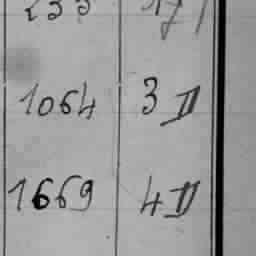 1064 3 II
1669 4 II